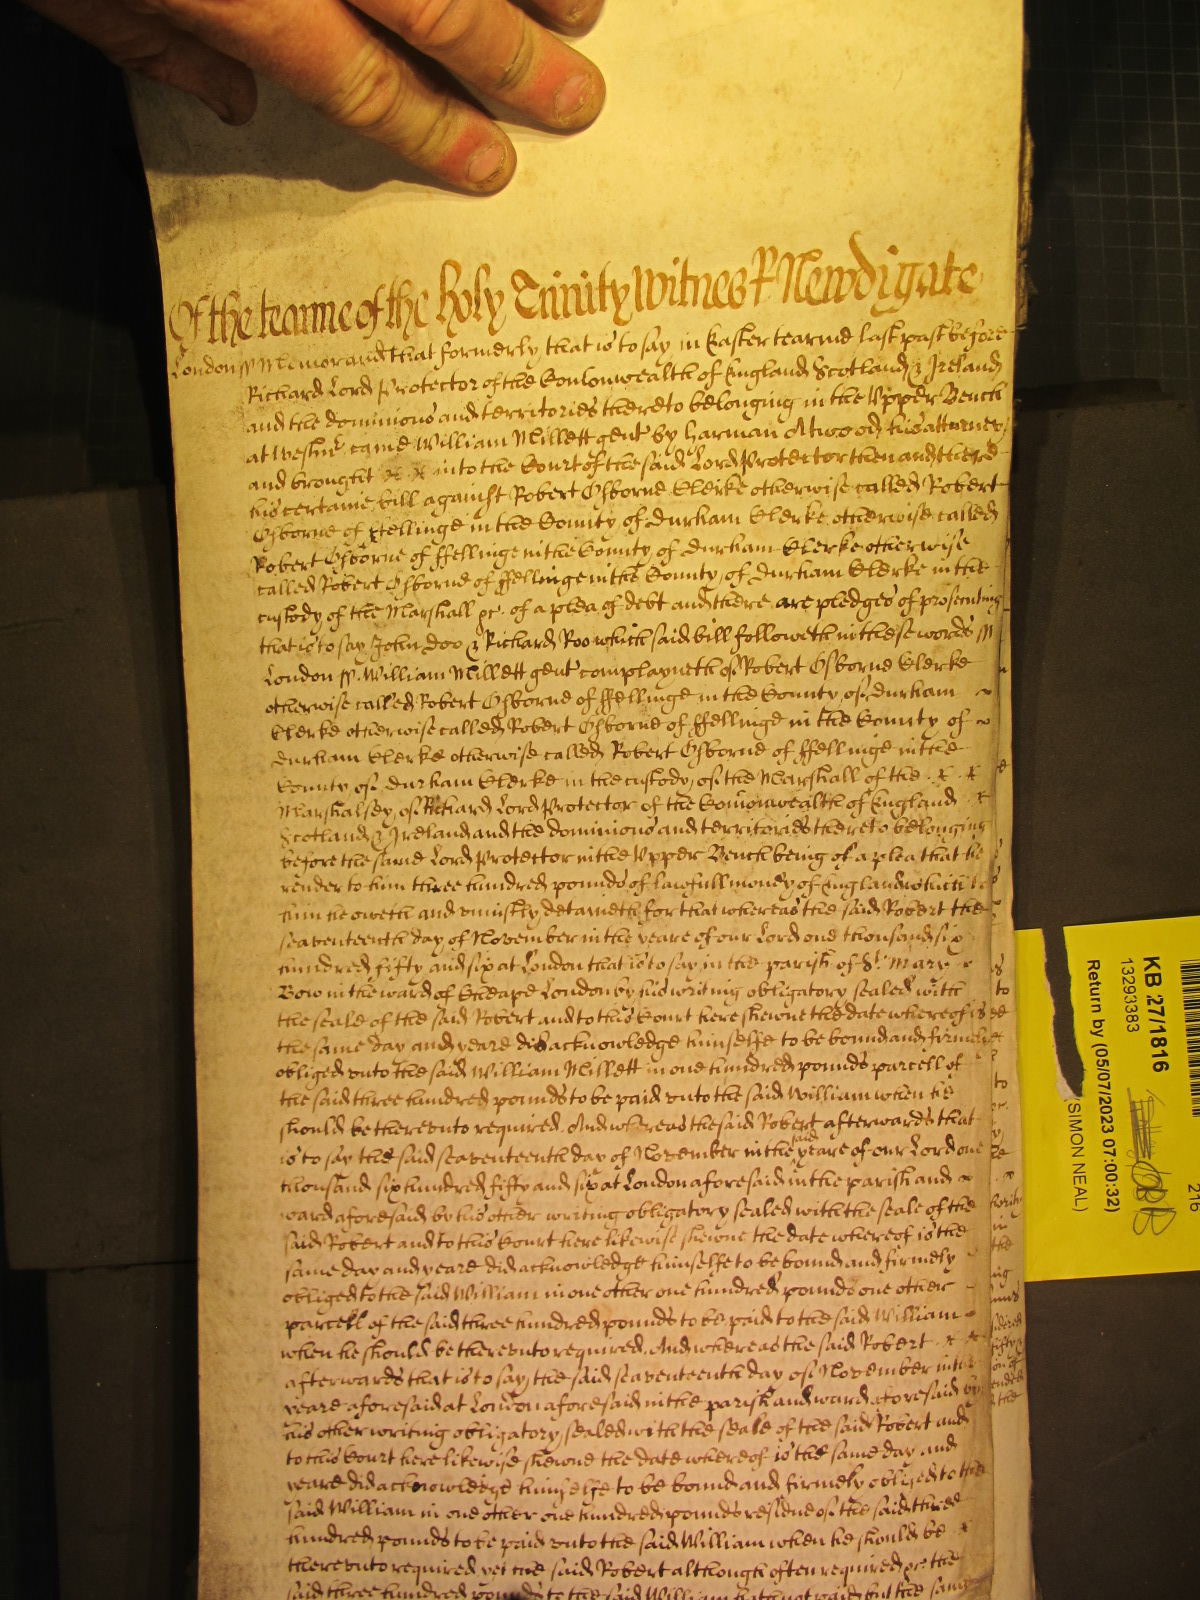 Of the tearme of the holy Trinity Witnes R Newdigate
London ss Memorand that formerly that is to say in Easter tearme last past before
Richard Lord Protector of the Comonwealth of England Scotland & Ireland
and the dominions and territories thereto belonging in the Vpper Bench
at Westmr came William Millett gent by Harman Atwood his attorney
and brought into the Court of the said Lord Protector then and there
his certaine bill against Robert Osborne Clerke otherwise called Robert
Osborne of ffellinge in the County of Durham Clerke otherwise called
Robert Osborne of ffellinge in the County of Durham Clerke otherwise
called Robert Osborne of ffellinge in the County of Durham Clerke in the
custody of the Marshall &c. of a plea of debt and there are pledges of prosecuting
that is to say John Doo & Richard Roo which said bill followeth in these words ss
London ss. William Millett gent complayneth of Robert Osborne Clerke
otherwise called Robert Osborne of ffellinge in the County of Durham
Clerke otherwise called Robert Osborne of ffellinge in the County of
Durham Clerke otherwise called Robert Osborne of ffellinge in the
County of Durham Clerke in the custody of the Marshall of the
Marshalsey of Richard Lord Protector of the Comonwealth of England
Scotland & Ireland and the dominions and territories thereto belonging
before the same Lord Protector in the Vpper Bench being of a plea that he
render to him three hundred pounds of lawfull money of England which to
him he oweth and uniustly detaineth for that whereas the said Robert the
seaventeenth day of November in the yeare of our Lord one thousand six
hundred fifty and six at London that is to say in the parish of St. Mary
Bow in the ward of Cheape London by his writing obligatory sealed with
the seale of the said Robert and to this Court here shewne the date whereof is
the same day and yeare did acknowledge himselfe to be bound and firmely
obliged unto the said William Millett in one hundred pounds parcell of
the said three hundred pounds to be paid unto the said William when he
should be thereunto required. And whereas the said Robert afterwards that
is to say the said seaventeenth day of November in the said yeare of our Lord one
thousand six hundred fifty and six at London aforesaid in the parish and
ward aforesaid by his other writing obligatory sealed with the seale of the
said Robert and to this Court here likewise shewne the date whereof is the
same day and yeare did acknowledge himselfe to be bound and firmely
obliged to the said William in one other one hundred pounds one other
parcell of the said three hundred pounds to be paid to the said William
when he should be thereunto required. And whereas the said Robert
afterwards that is to say the said seaventeenth day of November in the
yeare aforesaid at London aforesaid in the parish and ward aforesaid by
his other writing obligatory sealed with the seale of the said Robert and
to this Court here likewise shewne the date whereof is the same day and
yeare did acknowledge himselfe to be bound and firmely obliged to the
said William in one other one hundred pounds residue of the said three
hundred pounds to be paid unto the said William when he should be
thereunto required yet the said Robert although often required &c. the
said three hundred pounds to the said William hath not paid but the same
KB 27/1816
13293383
Return by (05/07/2023 07:00:32)
(SIMON NEAL)
216